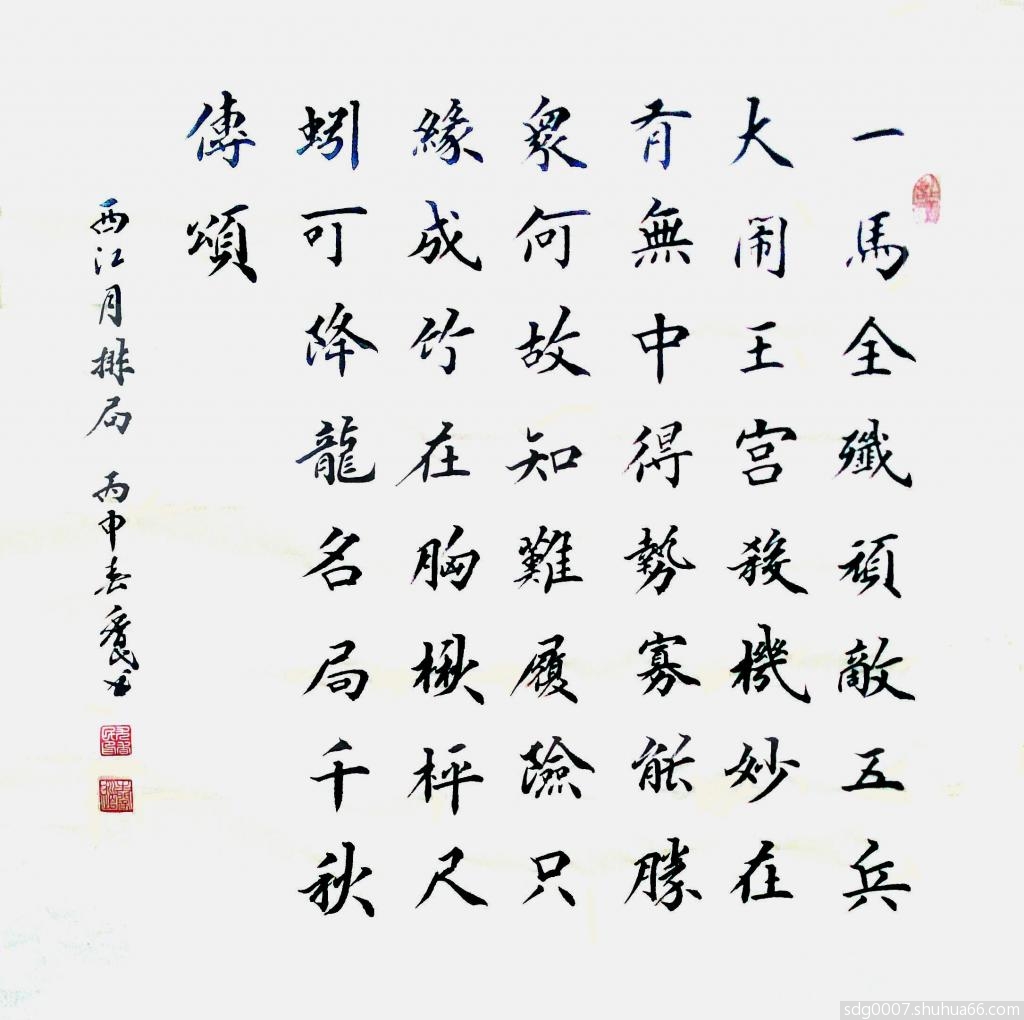 一馬全殲頑敵五兵
大闹王宫殺機妙在
有無中得勢寡能勝
衆何故知難履險只
緣成竹在胸楸枰尺
蚓可降龍名局千秋
傳頌
西江月排局 丙申春
sdg0007.shuhua66.com